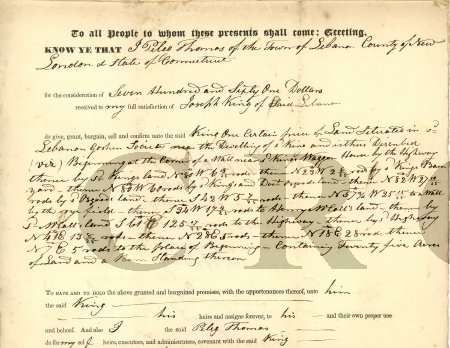 To all People to whom these presents shall come: Greeting.
KNOW YE THAT I Peleg Thomas of the Town of Lebanon County of New
London & State of Connecticut
for the consideration of Seven Hundred and Sixty One Dollars
received to my full satisfaction of Joseph King of Said Lebanon
do give, grant, bargain, sell and confirm unto the said King One Certain piece of Land Situated in sd
Lebanon Goshen Society near the Dwelling of sd King and is thus Described
(viz) Beginning at the Corner of a Wall near sd King's Waggon House by the Highway
thence by sd Kings land N
yard - thence N 80 W 6 rods by sd King and land - thence N 82 W
rods by land - thence S 42 W 5 rods - thence S W 25 to Wall
by the field - thence S W 17 rods to Henry land - thence by
land S 61 E 125 rods to the Highway - thence by sd Highway
N E 13 rods - thence N 28 E rods - thence N 18 E 28 rods - thence
N E rods to the place of Beginning - Containing Twenty five Acres
of Land and a Barn Standing thereon
TO HAVE AND TO HOLD the above granted and bargained premises, with the appurtenances thereof, unto him
the said King
his heirs and assigns forever, to his and their own proper use
and behoof. And also I the said Peleg Thomas
do for my self heirs, executors, and administrators, covenant with the said King